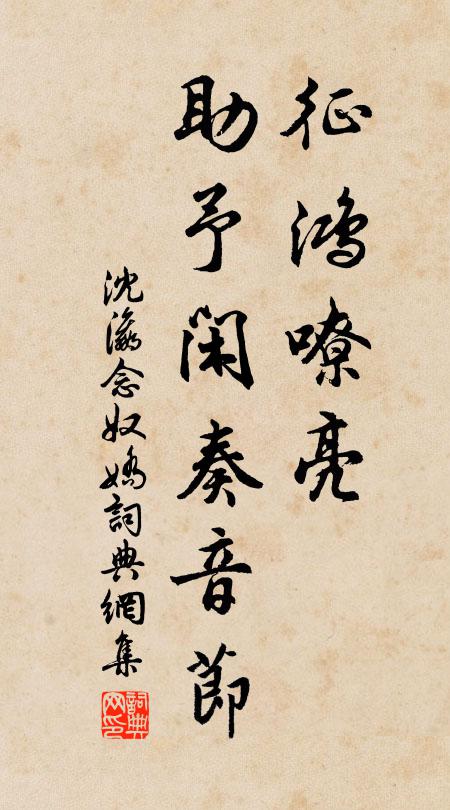 征鸿嘹亮
助予闲奏音節
沈瀛念奴嬌詞典網集
詞典网印